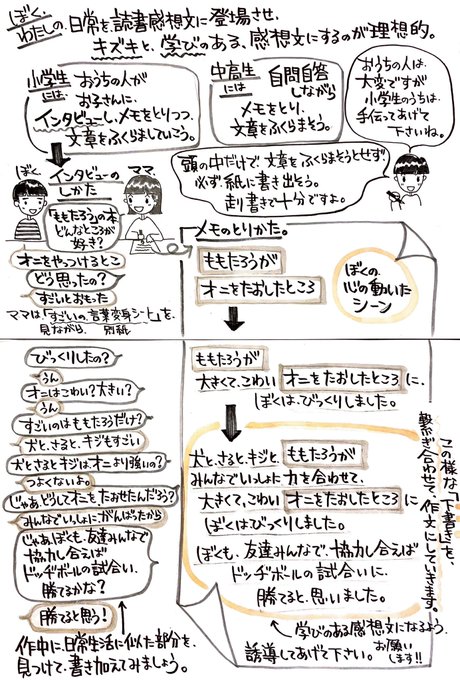 ぼく、
わたしの、日常を、読書感想文に登場させ、
キズキと、学びのある、感想文にするのが理想的。
小学生には
おうちの人が
お子さんに、
インタビューし、メモをとりつつ、
文章をふくらましていこう。
中高生には
自問自答
しながら
メモをとり、
文章をふくらまそう。
おうちの人は、
大変ですが
小学生のうちは、
手伝ってあげて
下さいね。
頭の中だけで、文章をふくらまそうとせず、
必ず、紙に書き出そう。
走り書きで十分ですよ。
ぼく
インタビューの
しかた
ママ
「ももたろう」の本
どんなところが
好き?
オニをやっつけるとこ
どう思ったの?
すごいとおもった
ママは、「すごいの、言葉変身シート」を、
見ながら
別紙
メモのとりかた。
ももたろうが
オニをたおしたところ
ぼくの、
心の動いた
シーン
びっくりしたの?
うん
オニはこわい?大きい?
うん
すごいのはももたろうだけ?
犬と、さると、キジもすごい
犬とさるとキジは、オニより強いの?
つよくないよ。
じゃあ、どうしてオニをたおせたんだろう?
みんなでいっしょにがんばったから
じゃあ、ぼくも、友達みんなで
協力し合えば
ドッヂボールの試合い、
勝てるかな?
勝てると思う!
作中に、日常生活に似た部分を、
見つけて、書き加えてみましょう。
ももたろうが
大きくて、こわい オニをたおしたところに、
ぼくは、びっくりしました。
犬と、さると、キジと、ももたろうが
みんなでいっしょに力を合わせて、
大きくて、こわい オニをたおしたところに
ぼくはびっくりしました。
ぼくも、友達みんなで、協力し合えば
ドッヂボールの試合いに、
勝てると、思いました。
この様な「下書き」を、
繋ぎ合わせて、作文にしていきます。
学びのある感想文になるよう、
誘導してあげて下さい。
お願いします!!